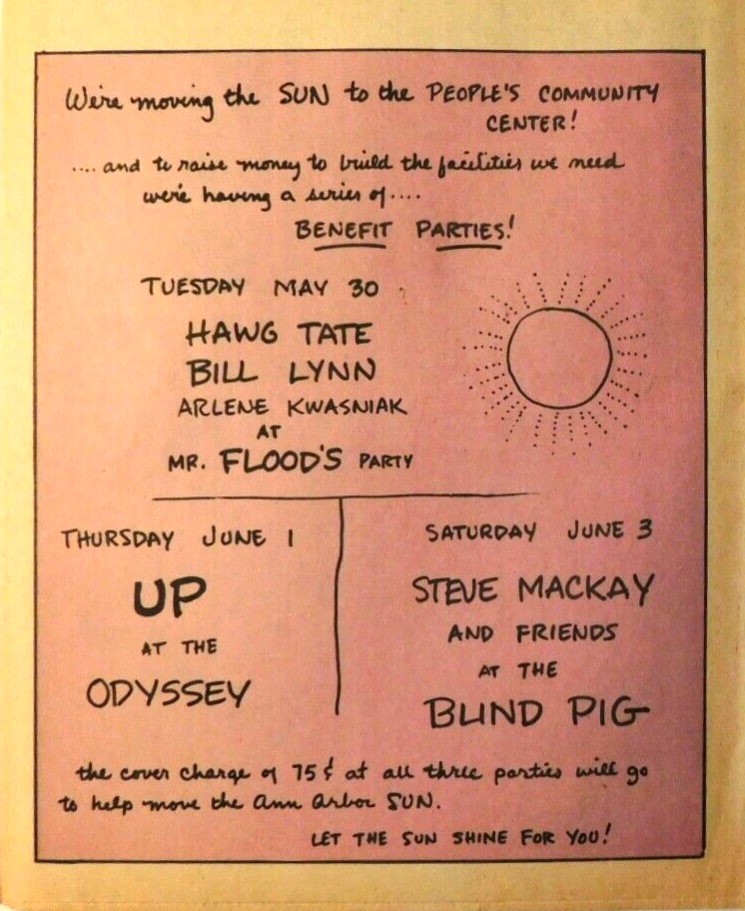 We're moving the SUN to the PEOPLE'S COMMUNITY
CENTER!
.... and to raise money to build the facilities we need
we're having a series of....
BENEFIT PARTIES!
TUESDAY MAY 30
HAWG TATE
BILL LYNN
ARLENE KWASNIAK
AT
MR. FLOOD'S PARTY
THURSDAY JUNE 1
UP
AT THE
ODYSSEY
SATURDAY JUNE 3
STEVE MACKAY
AND FRIENDS
AT THE
BLIND PIG
the cover charge of 75¢ at all three parties will go
to help move the Ann Arbor SUN.
LET THE SUN SHINE FOR YOU!